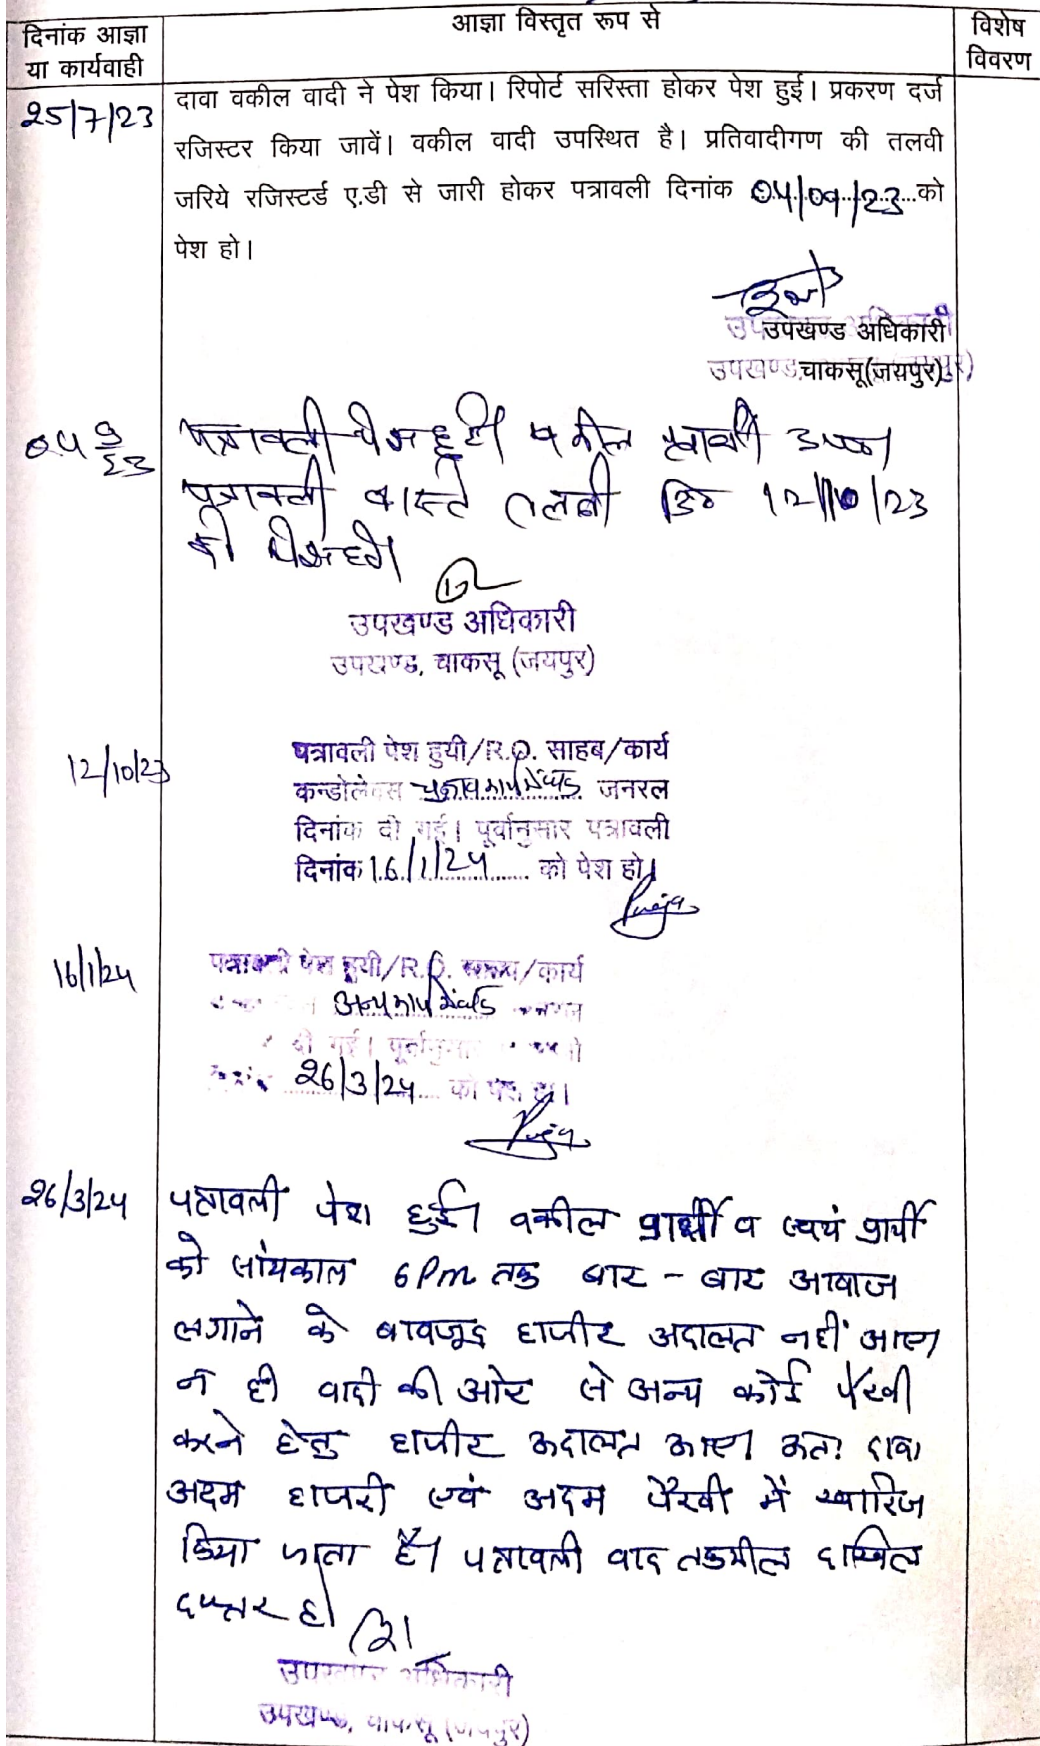 दिनांक आज्ञा
या कार्यवाही
आज्ञा विस्तृत रूप से
विशेष
विवरण
25/7/23
दावा वकील वादी ने पेश किया। रिपोर्ट सरिस्ता होकर पेश हुई। प्रकरण दर्ज
रजिस्टर किया जावें। वकील वादी उपस्थित है। प्रतिवादीगण की तलवी
जरिये रजिस्टर्ड ए.डी से जारी होकर पत्रावली दिनांक 04/09/23 को
पेश हो।
उपखण्ड अधिकारी
उपखण्ड चाकसू(जयपुर)
04 9/23
पत्रावली पेश हुयी वकील प्रार्थी उप०
पत्रावली वास्ते तलबी दि० 12/10/23
को पेश हो।
उपखण्ड अधिकारी
उपखण्ड, चाकसू (जयपुर)
12/10/23
पत्रावली पेश हुयी/R.O. साहब/कार्य
कन्डोलेन्स चुनाव कार्य में व्यस्त जनरल
दिनांक दी गई। पूर्वानुसार पत्रावली
दिनांक 16/1/24 को पेश हो।
Puja
16/1/24
पत्रावली पेश हुयी/R.O. साहब/कार्य
अन्य कार्य में व्यस्त जनरल
दी गई। पूर्वानुसार
26/3/24 को पेश हो।
Puja
26/3/24
पत्रावली पेश हुई। वकील प्रार्थी व स्वयं प्रार्थी
को सांयकाल 6 Pm तक बार - बार आवाज
लगाने के बावजूद हाजीर अदालत नहीं आए।
न ही वादी की ओर से अन्य कोई पैरवी
करने हेतु हाजीर अदालत आए। अतः दावा
अदम हाजरी एवं अदम पैरवी में खारिज
किया जाता है। पत्रावली वाद तकमील दाखिल
दफ्तर हो।
उपखण्ड अधिकारी
उपखण्ड, चाकसू (जयपुर)